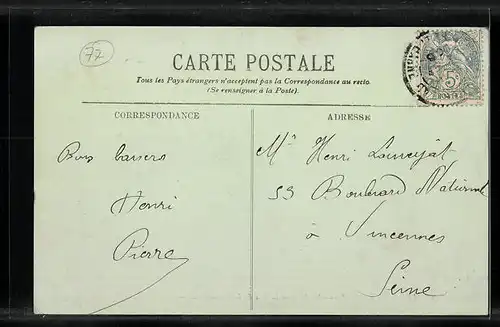 77
CARTE POSTALE
Tous les Pays étrangers n'acceptent pas la Correspondance au recto.
(Se renseigner à la Poste).
CORRESPONDANCE
ADRESSE
5c
Bons baisers
Henri
Pierre
Mr Henri
53 Boulevard National
à Vincennes
Seine